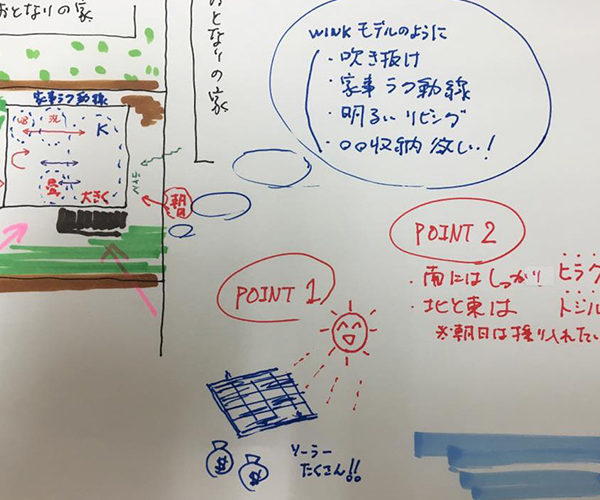 おとなりの家
おとなりの家
WINKモデルのように
・吹き抜け
・家事ラク動線
・明るいリビング
・〇〇収納欲しい!
家事ラク動線
UB
洗
K
畳
大きく
チラッ
朝日
POINT 1
ソーラー
たくさん!!
$
$
POINT 2
・南にはしっかり ヒラク
・北と東は トジル
※朝日は採り入れたい